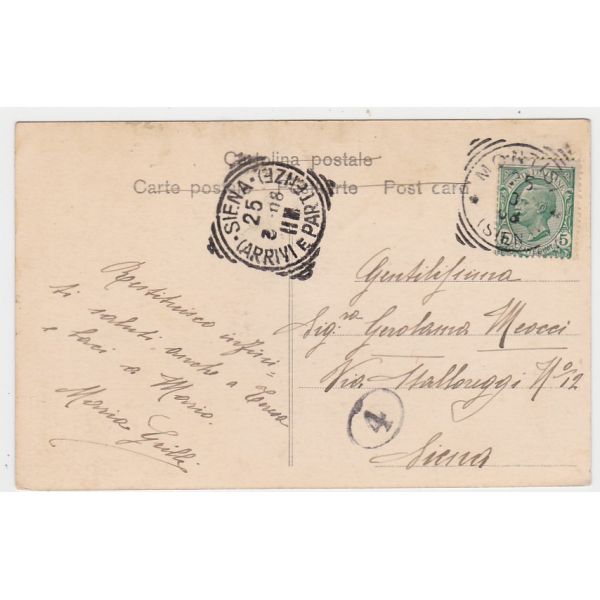 Cartolina postale
Carte postale Carte Post card
SIENA
(ARRIVI E PARTENZE)
25
2 08
11 M
MONT
(SIEN
5
Restituisco infini=
ti saluti, anche a Teresa
e baci a Mario.
Maria Grilli
Gentilissima
Sig.ra Gerolama Meocci
Via Stalloreggi No 12
Siena
4